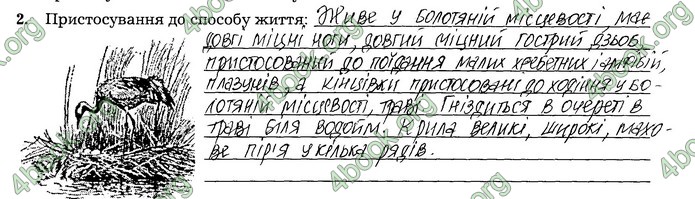 2. Пристосування до способу життя: Живе у болотяній місцевості має
довгі міцні ноги, довгий міцний гострий дзьоб
пристосований до поїдання малих хребетних і амфібій,
плазунів, а кінцівки пристосовані до ходіння у бо-
лотяній місцевості, траві. Гніздиться в очереті в
траві біля водойм. Крила великі, широкі, махо-
ве пір'я у кілька рядів.